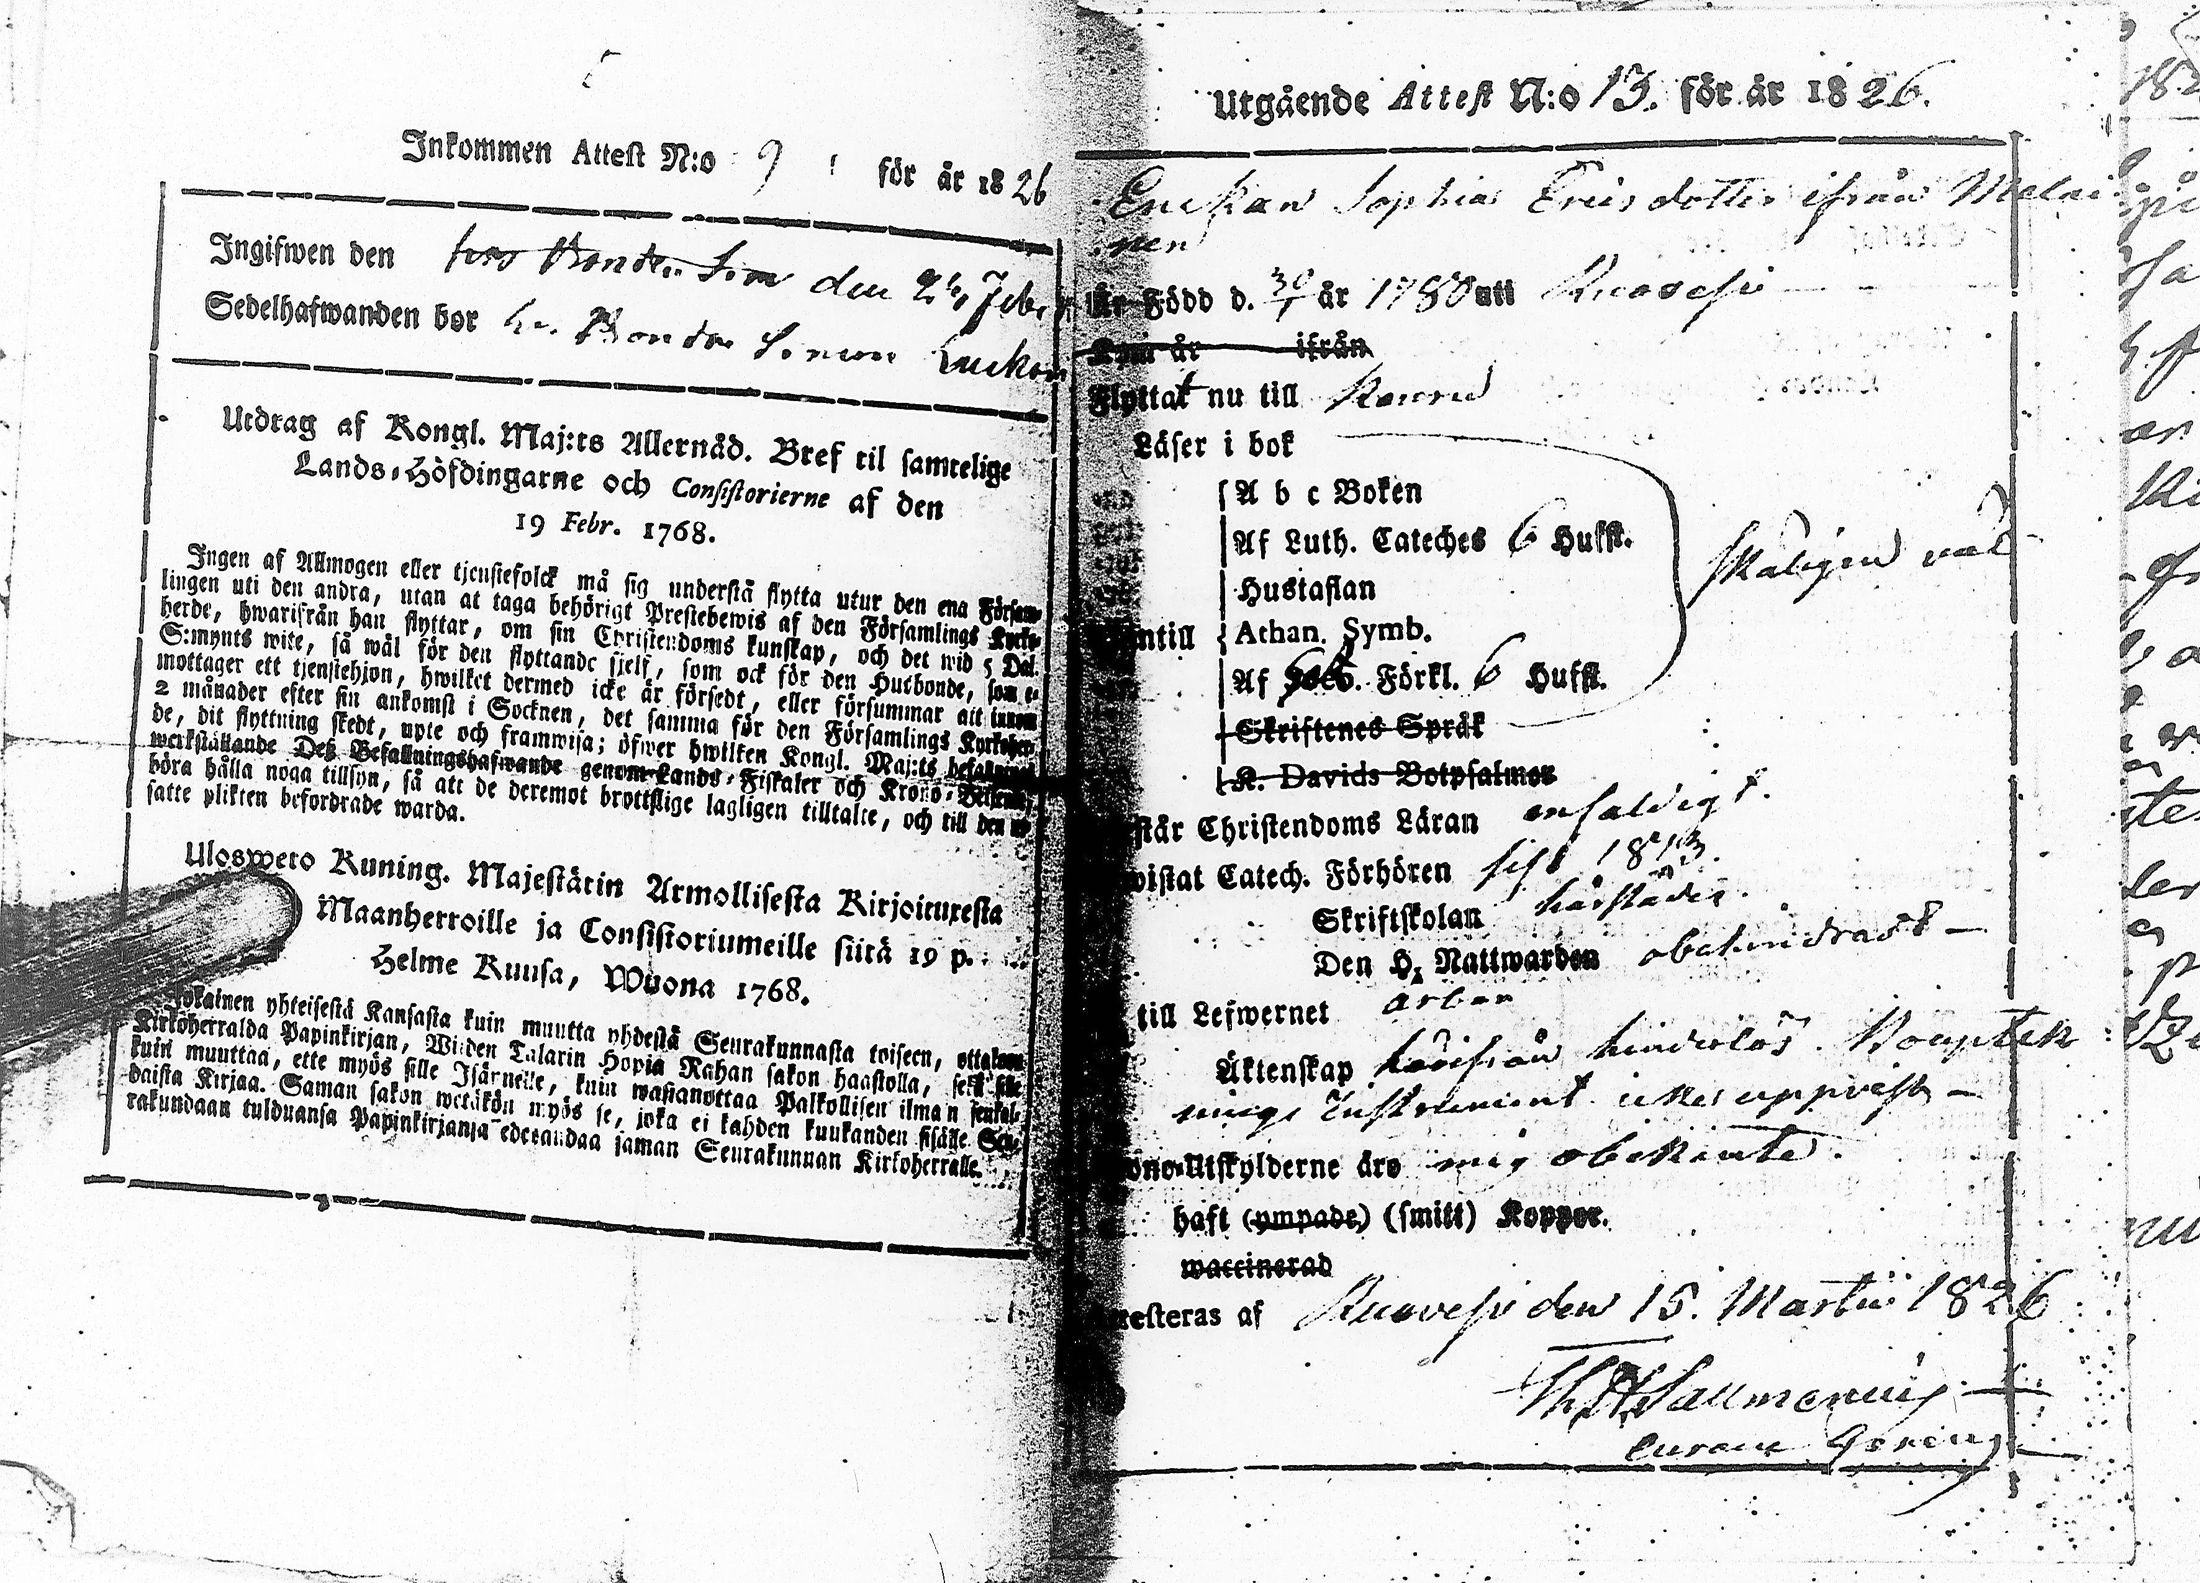 Inkommen Attest N:o 9 för år 1826
Ingifwen den hos Bonden Sim den 2 Feb
Sedelhafwanden bor hos Bonden Simon
Utdrag af Kongl. Maj:ts Allernåd. Bref til samtelige
Lands-Höfdingarne och Consistorierne af den
19 Febr. 1768.
Ingen af Allmogen eller tjenstefolck må sig understå flytta utur den ena Försam-
lingen uti den andra, utan at taga behörigt Prestebewis af den Församlings Kyrko-
herde, hwarifrån han flyttar, om sin Christendoms kunskap, och det wid 5 Dal.
S:mynts wite, så wäl för den flyttande sjelf, som ock för den Husbonde, som e-
mottager ett tjenstehjon, hwilket dermed icke är försedt, eller försummar att innom
2 månader efter sin ankomst i Socknen, det samma för den Församlings Kyrkoher-
de, dit flyttning skedt, upte och framwisa; öfwer hwilken Kongl. Maj:ts befallning
werkställande Deß Befallningshafwande genom Lands-Fiskaler och Krono-Betjente,
böra hålla noga tillsyn, så att de deremot brottslige lagligen tilltalte, och till den ut-
satte plikten befordrade warda.
Ulosweto Kuning. Majestätin Armollisesta Kirjoituxesta
Maanherroille ja Consistoriumeille siitä 19 p.
Helme Kuusa, Wuona 1768.
Jokainen yhteisestä Kansasta kuin muutta yhdestä Seurakunnasta toiseen, ottakaan
Kirkoherralda Papinkirjan, Wiiden Talarin Hopia Rahan sakon haastolla, sekä sille
kuin muuttaa, ette myös sille Isännelle, kuin wastanottaa Palkollisen ilman senkal-
daista Kirjaa. Saman sakon wetäkön myös se, joka ei kahden kuukauden sisälle Seu-
rakundaan tulduansa Papinkirjansa edesandaa saman Seurakunnan Kirkoherralle.
Utgående Attest N:o 13. för år 1826.
Enckan Sophia Ericsdotter ifrån Melai
nen
Är Född d. 30/1 år 1780 uti Ruovesi
Kom år ifrån
Flyttat nu till Keuru
Läser i bok
A b c Boken
Af Luth. Cateches 6 Hufst.
Hustaflan skäligen väl
Utantill Athan. Symb.
Af Förkl. 6 Hufst.
Skriftenes Språk
K. Davids Botpsalmer
står Christendoms Läran enfaldigt.
wistat Catech. Förhören sist 1813
Skriftskolan härstädes.
Den H. Nattwarden obehindradt
till Lefwernet ärbar
Äktenskap härifrån hinderlös. Bouptek
nings Instrument icke uppvist
Krono-Utskylderne äro mig obekante.
haft (ympade) (smitt) Koppor.
waccinerad
Attesteras af Ruovesi den 15. Martii 1826